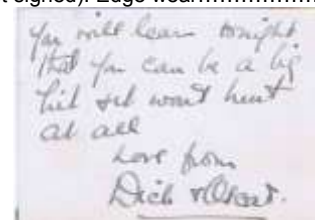 t signed). Edge wear
You will learn tonight
that you can be a big
hit and won't hurt
at all
Love from
Dick &